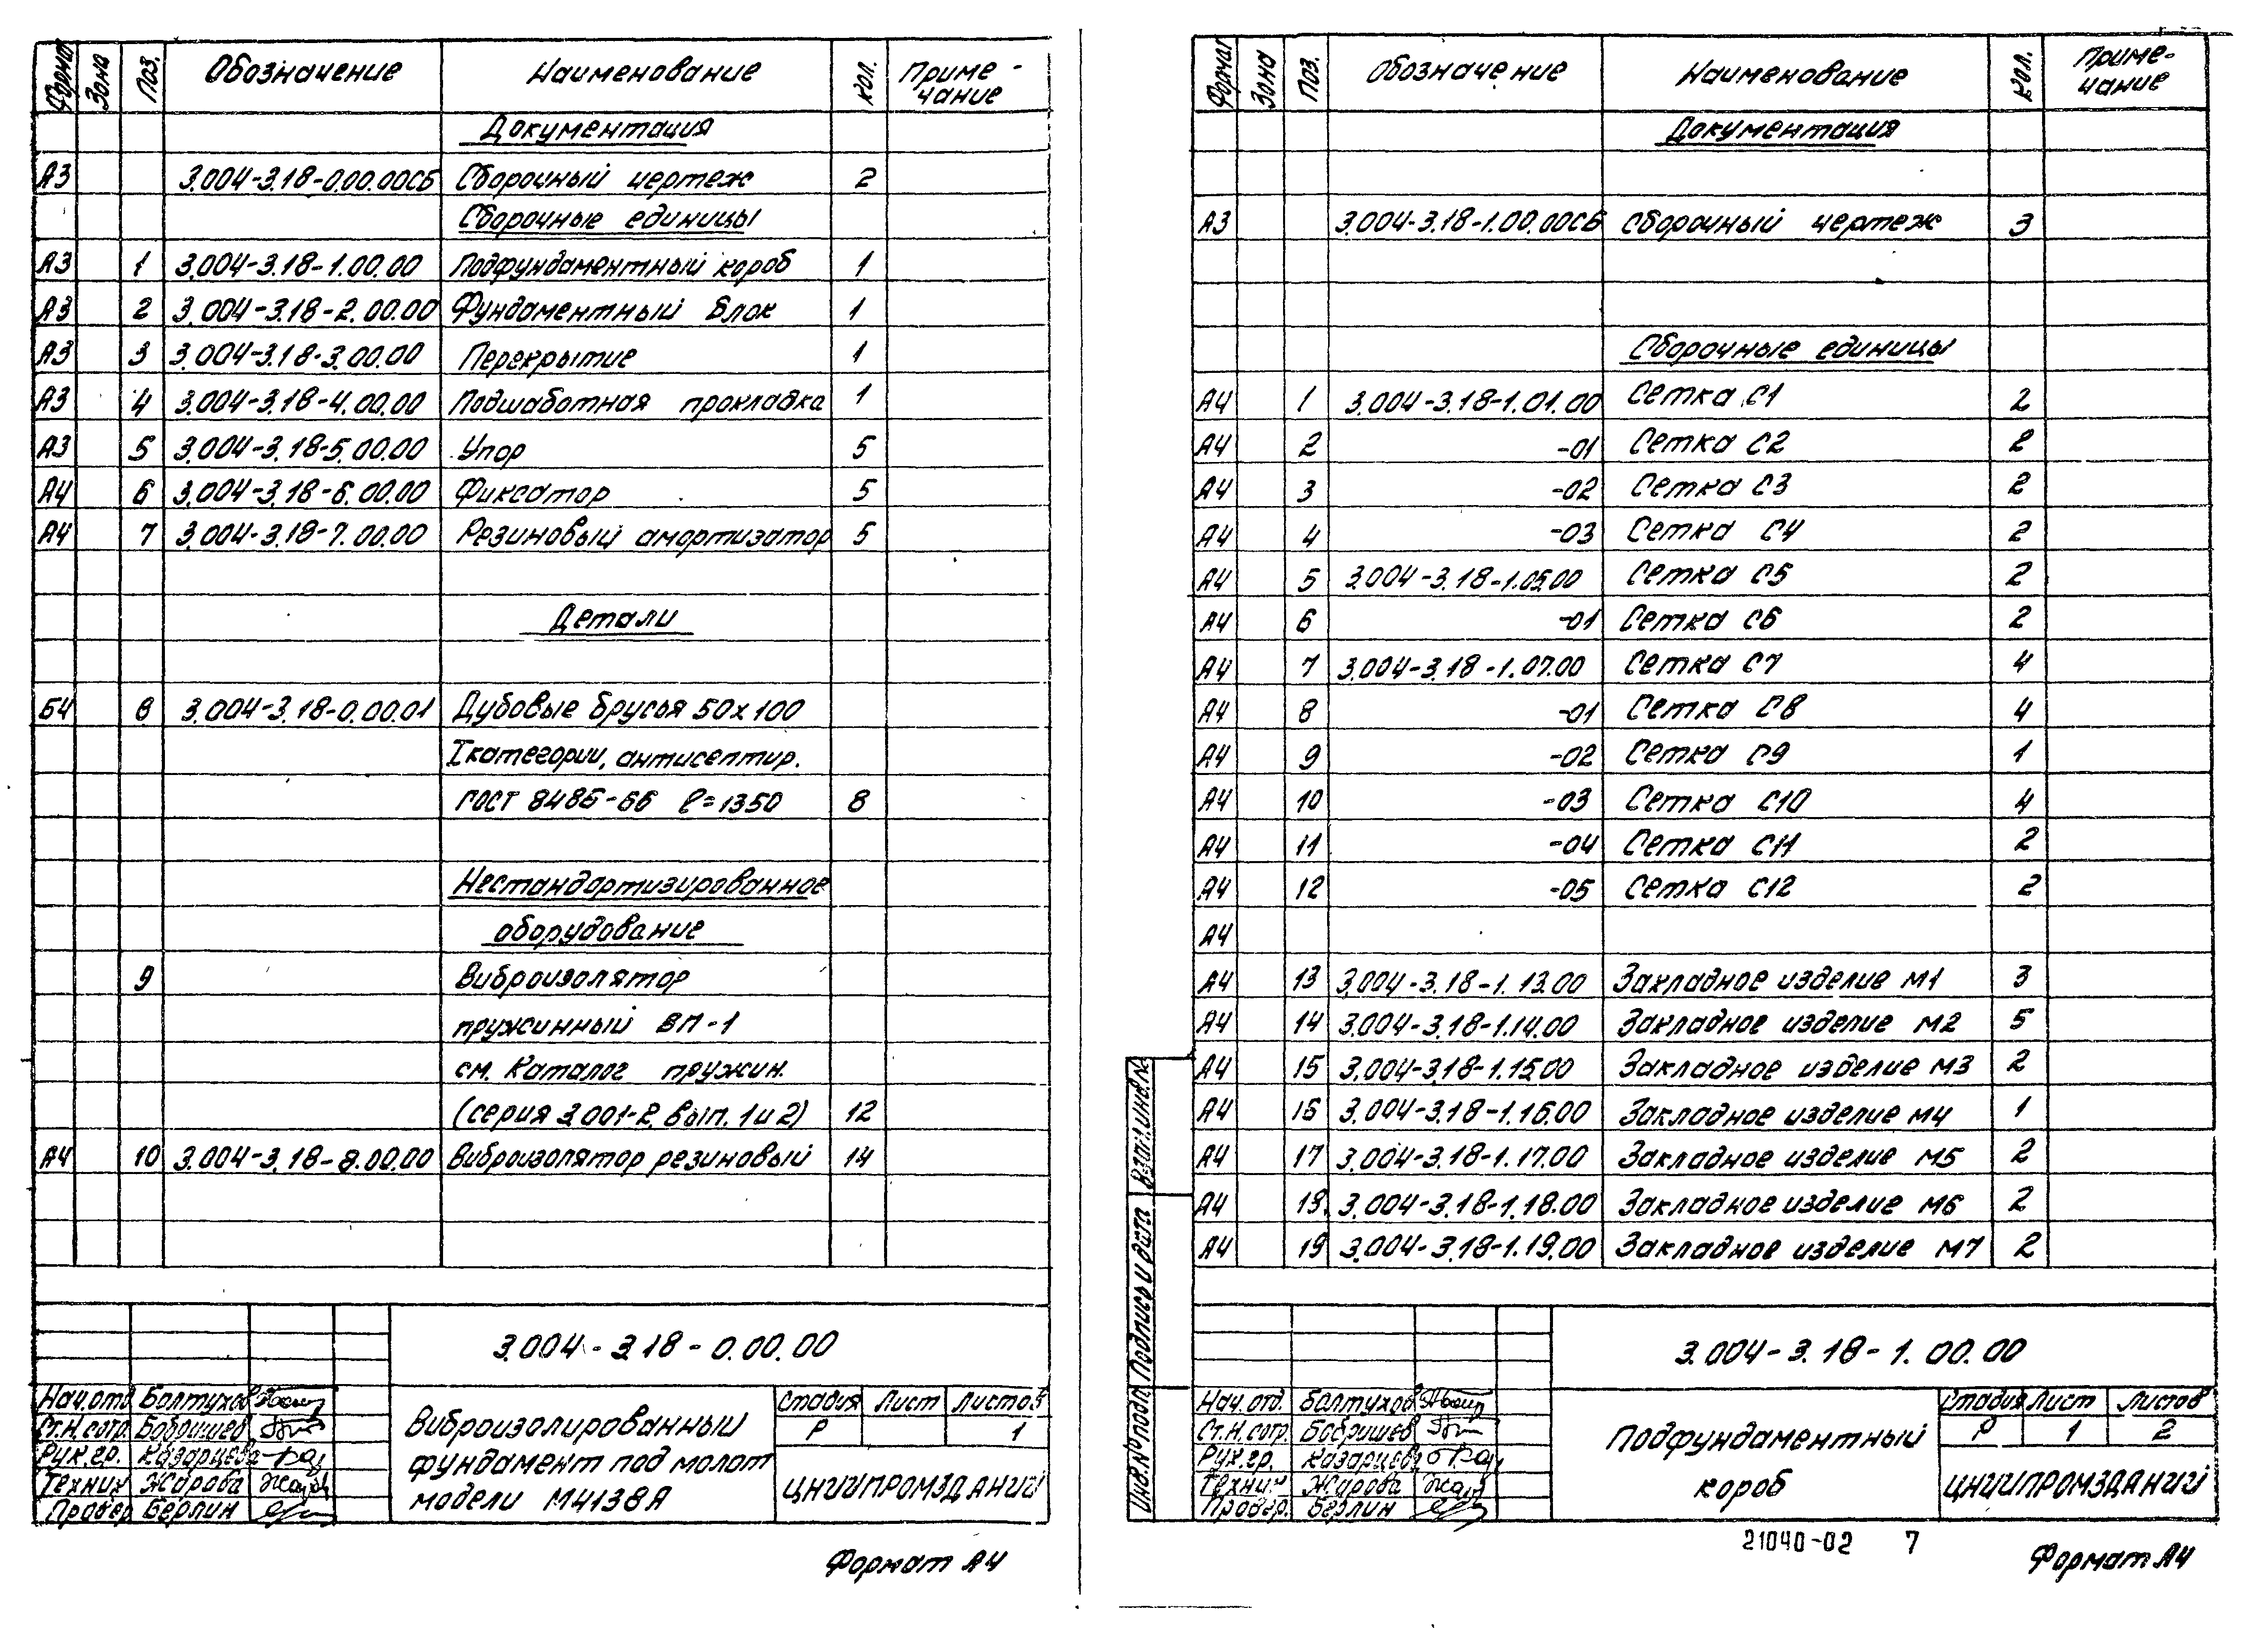 Формат Зона Поз. Обозначение Наименование Кол. Приме-
чание
Документация
А3 3.004-3.18-0.00.00СБ Сборочный чертеж 2
Сборочные единицы
А3 1 3.004-3.18-1.00.00 Подфундаментный короб 1
А3 2 3.004-3.18-2.00.00 Фундаментный блок 1
А3 3 3.004-3.18-3.00.00 Перекрытие 1
А3 4 3.004-3.18-4.00.00 Подшаботная прокладка 1
А3 5 3.004-3.18-5.00.00 Упор 5
А4 6 3.004-3.18-6.00.00 Фиксатор 5
А4 7 3.004-3.18-7.00.00 Резиновый амортизатор 5
Детали
Б4 8 3.004-3.18-0.00.01 Дубовые брусья 50х100
I категории, антисептир.
ГОСТ 8486-66 ℓ=1350 8
Нестандартизированное
оборудование
9 Виброизолятор
пружинный ВП-1
см. Каталог пружин.
(серия 3.001-2, вып. 1 и 2) 12
А4 10 3.004-3.18-8.00.00 Виброизолятор резиновый 14
3.004-3.18-0.00.00
Нач.отд. Балтухов
Ст.н.сотр. Бобришев
Рук.гр. Казарцева
Техник Жарова
Провер. Берлин
Виброизолированный
фундамент под молот
модели М4138А
Стадия Лист Листов
Р 1
ЦНИИПРОМЗДАНИЙ
Формат А4
Формат Зона Поз. Обозначение Наименование Кол. Приме-
чание
Документация
А3 3.004-3.18-1.00.00СБ Сборочный чертеж 3
Сборочные единицы
А4 1 3.004-3.18-1.01.00 Сетка С1 2
А4 2 -01 Сетка С2 2
А4 3 -02 Сетка С3 2
А4 4 -03 Сетка С4 2
А4 5 3.004-3.18-1.05.00 Сетка С5 2
А4 6 -01 Сетка С6 2
А4 7 3.004-3.18-1.07.00 Сетка С7 4
А4 8 -01 Сетка С8 4
А4 9 -02 Сетка С9 1
А4 10 -03 Сетка С10 4
А4 11 -04 Сетка С11 2
А4 12 -05 Сетка С12 2
А4
А4 13 3.004-3.18-1.13.00 Закладное изделие М1 3
А4 14 3.004-3.18-1.14.00 Закладное изделие М2 5
А4 15 3.004-3.18-1.15.00 Закладное изделие М3 2
А4 16 3.004-3.18-1.16.00 Закладное изделие М4 1
А4 17 3.004-3.18-1.17.00 Закладное изделие М5 2
А4 18 3.004-3.18-1.18.00 Закладное изделие М6 2
А4 19 3.004-3.18-1.19.00 Закладное изделие М7 2
Инв.№ подл. Подпись и дата Взам.инв.№
3.004-3.18-1.00.00
Нач.отд. Балтухов
Ст.н.сотр. Бобришев
Рук.гр. Казарцева
Техник Жарова
Провер. Берлин
Подфундаментный
короб
Стадия Лист Листов
Р 1 2
ЦНИИПРОМЗДАНИЙ
21040-02 7
Формат А4